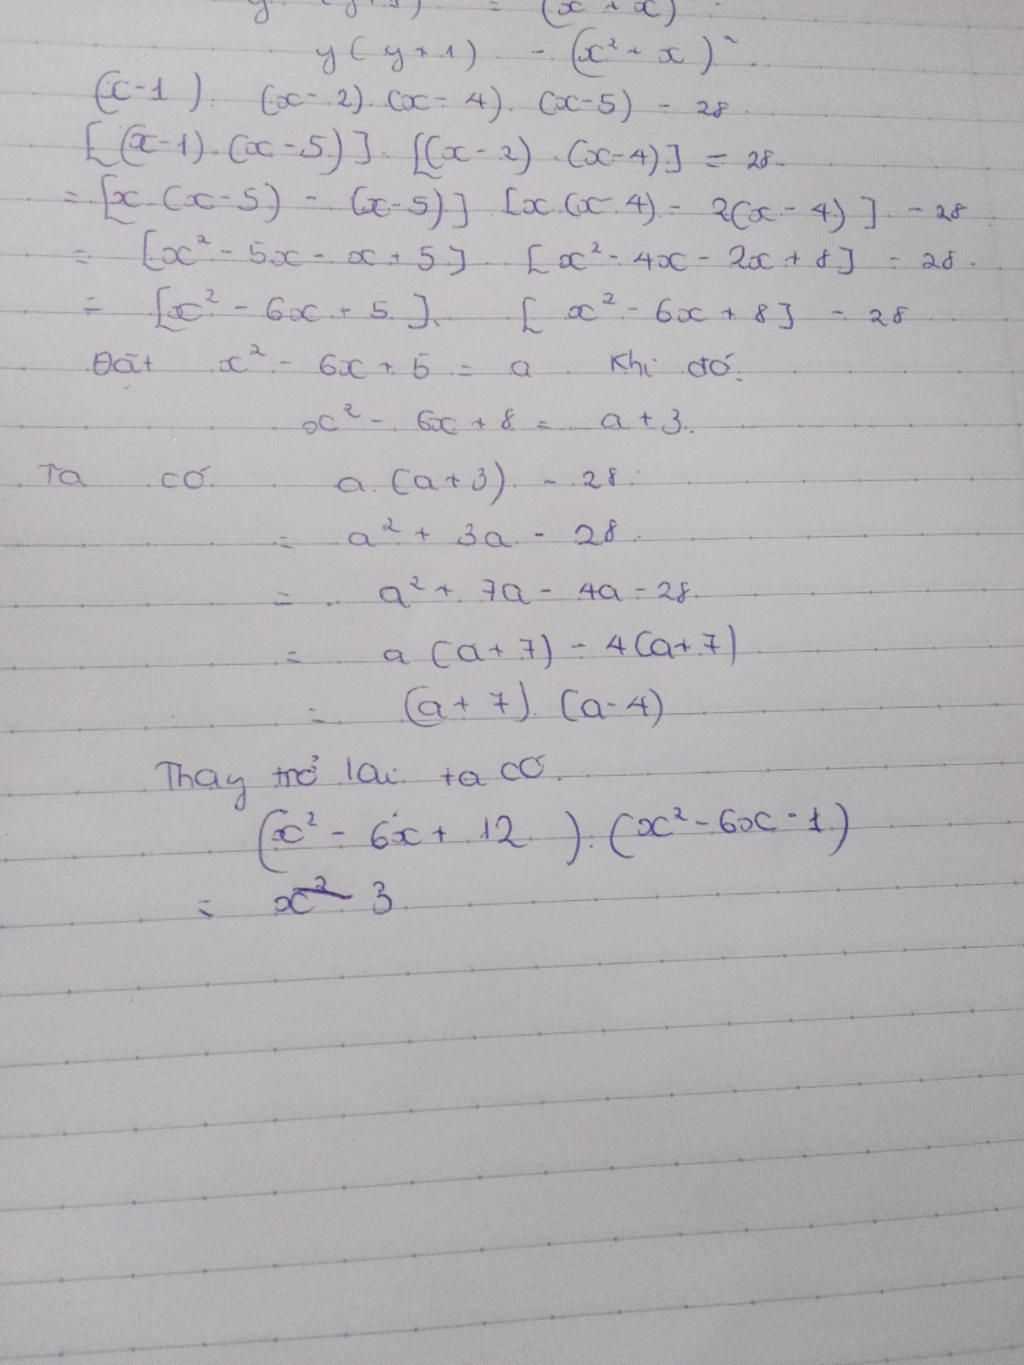 y(y+1) - (x²+x)²
(x-1). (x-2).(x-4).(x-5) - 28
[(x-1).(x-5)]. [(x-2).(x-4)] = 28
= [x.(x-5) - (x-5)] [x.(x-4) - 2(x-4)] - 28
= [x²-5x-x+5] [x²-4x-2x+8] - 28.
= [x²-6x+5]. [x²-6x+8] - 28
Đặt x²-6x+5 = a Khi đó.
x²-6x+8 = a+3.
Ta có a.(a+3) - 28.
= a²+3a-28.
= a²+7a-4a-28.
= a(a+7)-4(a+7)
= (a+7).(a-4)
Thay trở lại ta có.
(x²-6x+12).(x²-6x-1)
= x² 3